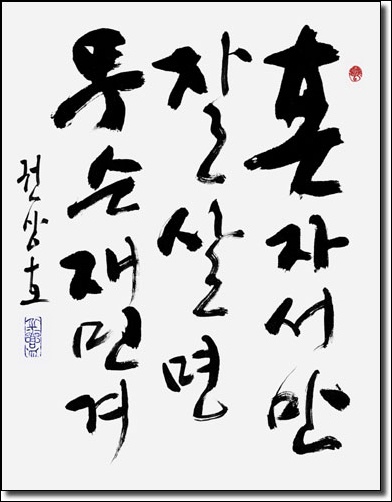 혼자서만
잘 살면
무슨 재민겨
권상호